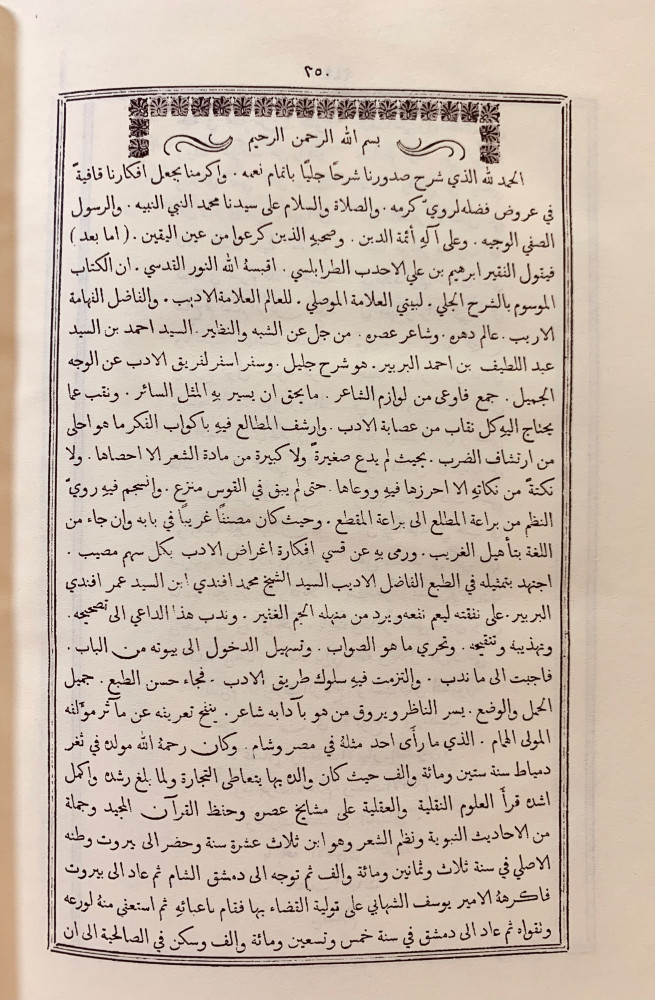 ٢٥٠
بسم الله الرحمن الرحيم
الحمد لله الذي شرح صدورنا شرحًا جليًّا باتمام نعمه ۰ واكرمنا بجعل افكارنا قافيةً
في عروض فضله لرويّ كرمه ۰ والصلاة والسلام على سيدنا محمد النبي النبيه ۰ والرسول
الصفي الوجيه ۰ وعلى آلهِ أئمة الدين ۰ وصحبهِ الذين كرعوا من عين اليقين ۰ ( اما بعد )
فيقول الفقير ابرهيم بن علي الاحدب الطرابلسي ۰ اقبسهُ الله النور القدسي ۰ ان الكتاب
الموسوم بالشرح الجلي ۰ لبيتي العلامة الموصلي ۰ للعالم العلامة الاديب ۰ والفاضل الفهامة
الاريب ۰ عالم دهره ۰ وشاعر عصره ۰ من جل عن الشبه والنظير ۰ السيد احمد بن السيد
عبد اللطيف بن احمد البربير ۰ هو شرح جليل ۰ وسفر اسفر لفريق الادب عن الوجه
الجميل ۰ جمع فاوعى من لوازم الشاعر ۰ ما يحق ان يسير بهِ المثل السائر ۰ ونقب عما
يحتاج اليهِ كل نقاب من عصابة الادب ۰ وارشف المطالع فيهِ باكواب الفكر ما هو احلى
من ارتشاف الضرب ۰ بحيث لم يدع صغيرةً ولا كبيرة من مادة الشعر الا احصاها ۰ ولا
نكتةً من نكاتهِ الا احرزها فيهِ ووعاها ۰ حتى لم يبق في القوس منزع ۰ وانسجم فيهِ رويّ
النظم من براعة المطلع الى براعة المقطع ۰ وحيث كان مصنفًا غريبًا في بابه وان جاء من
اللغة بتأهيل الغريب ۰ ورمى بهِ عن قسي افكارة اغراض الادب بكل سهم مصيب ۰
اجتهد بتمثيله في الطبع الفاضل الاديب السيد الشيخ محمد افندي ابن السيد عمر افندي
البربير ۰ على نفقته ليعم نفعه ويرد من منهله الجم الغفير ۰ وندب هذا الداعي الى تصحيحه ۰
وتهذيبة وتنقيحه ۰ وتحري ما هو الصواب ۰ وتسهيل الدخول الى بيوته من الباب ۰
فاجبت الى ما ندب ۰ والتزمت فيهِ سلوك طريق الادب ۰ فجاء حسن الطبع ۰ جميل
الحمل والوضع ۰ يسر الناظر ويروق من هو بآدابه شاعر ۰ ينفح تعريفه عن مآثر مؤلفه
المولى الهمام ۰ الذي ما رأى احد مثلهُ في مصر وشام ۰ وكان رحمهُ الله مولده في ثغر
دمياط سنة ستين ومائة والف حيث كان والده بها يتعاطى التجارة ولما بلغ رشده واكمل
اشده قرأ العلوم النقلية والعقلية على مشايخ عصره وحفظ القرآن المجيد وجملة
من الاحاديث النبوية ونظم الشعر وهو ابن ثلاث عشرة سنة وحضر الى بيروت وطنه
الاصلي في سنة ثلاث وثمانين ومائة والف ثم توجه الى دمشق الشام ثم عاد الى بيروت
فاكرههُ الامير يوسف الشهابي على تولية القضاء بها فقام باعبائهِ ثم استعفي منهُ لورعه
وتقواه ثم عاد الى دمشق في سنة خمس وتسعين ومائة والف وسكن في الصالحية الى ان